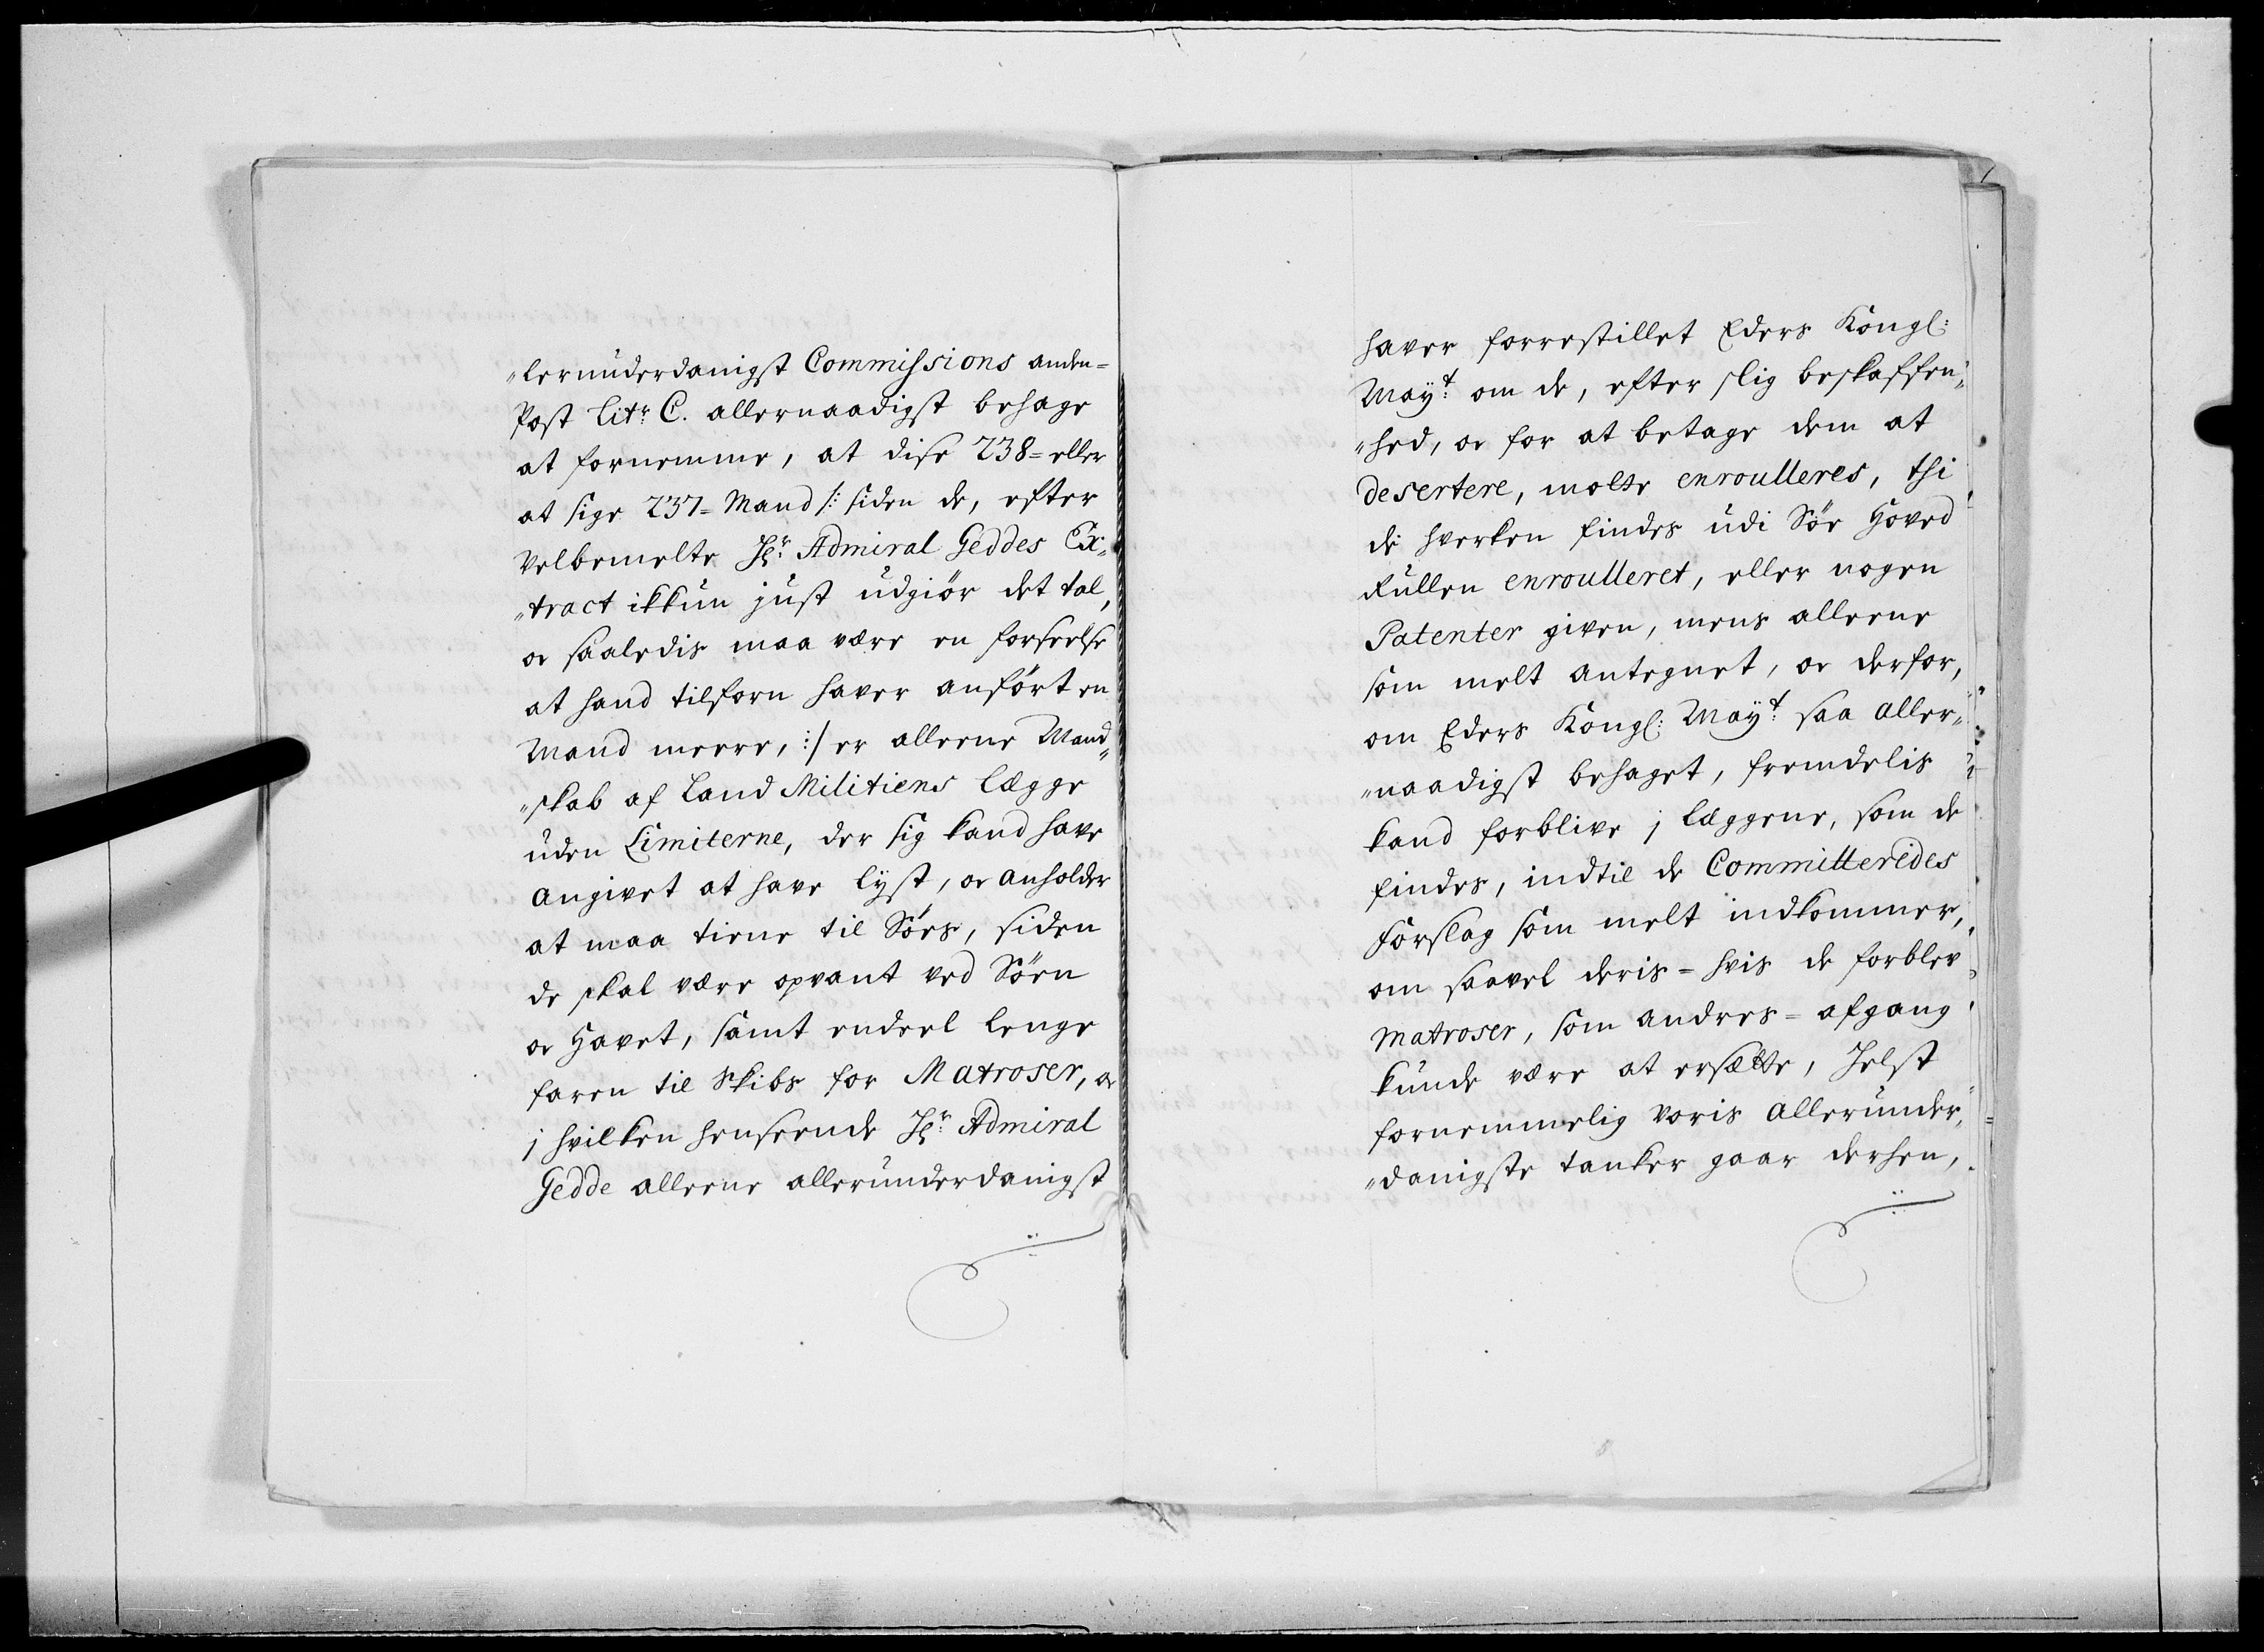 „lerunderdanigst Commissions anden=
Post Litr: C. allernaadigst behage
at fornemme, at disse 238= eller
at sige 237= Mand /: siden de, efter
Velbemelte Hr: Admiral Geddes Ex„
„tract ikkun just udgiör det tal,
oc saaledis maa være en forseelse
at hand tilforn haver anfört en
Mand meere, :/ er alleene Mand„
„skab af Land Militiens Lægge
uden Limiterne, der sig kand have
angivet at have Lyst, oc anholder
at maa tiene til Söes, siden
de skal være opvant ved Söen
oc Havet, samt endeel lenge
faren til Skibs for Matroser, oc
j hvilken henseende Hr: Admiral
Gedde alleene allerunderdanigst
haver forrestillet Eders Kongl:
Mayt: om de, efter slig beskaffen„
„hed, oc for at betage dem at
desertere, motte enroulleres, thi
de hverken findes udi Söe Hoved
Rullen enroulleret, eller nogen
Patenter given, mens alleene
som melt antegnet, oc derfor,
om Eders Kongl: Mayt: saa aller„
„naadigst behaget, fremdelis
kand forblive j Læggene, som de
findes, indtil de Committeredes
Forslag som melt indkommer,
om saavel deris= hvis de forblev
Matroser, som andres= afgang
kunde være at ersætte, Helst
fornemmelig voris allerunder„
„danigste tanker gaar derhen,